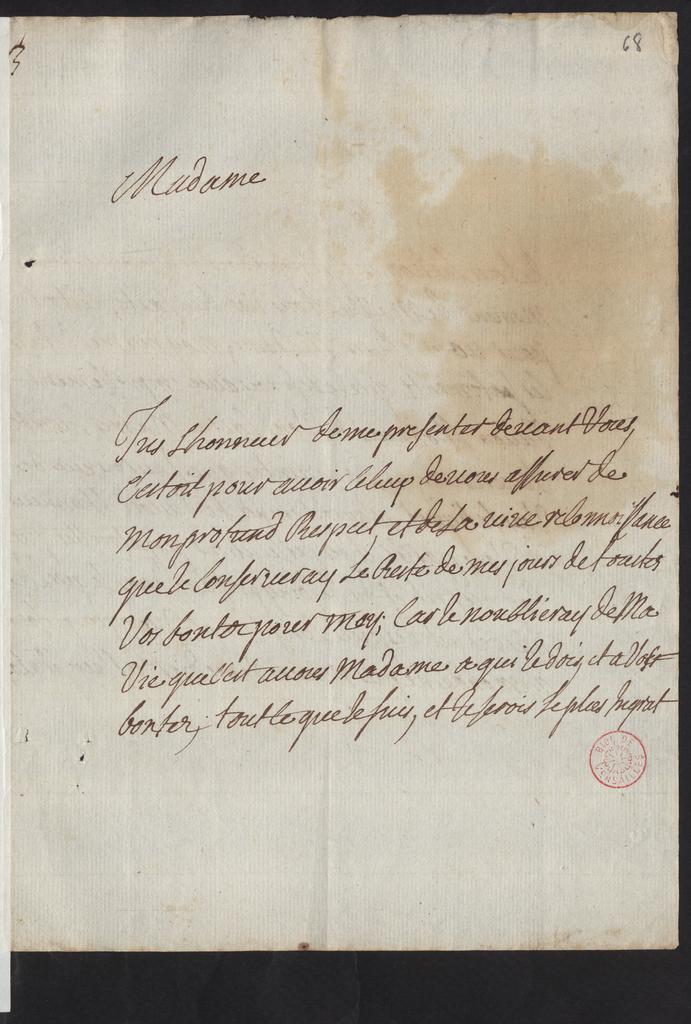 68
3
Madame
Jus L'honneur de me presenter deuant Vous,
C'estoit pour auoir le de vous assurer de
mon profund Respect, et de La viue reConnoissance
que ie Conserueray Le Reste de mes jours de toutes
Vos bontez pour moy; Car ie n'oublieray de Ma
Vie que C'est a vous Madame a qui ie dois, et a Vos
bontez, tout Ce que ie suis, et ie serois Le plus Ingrat
BIBL. DE
VERSAILLES